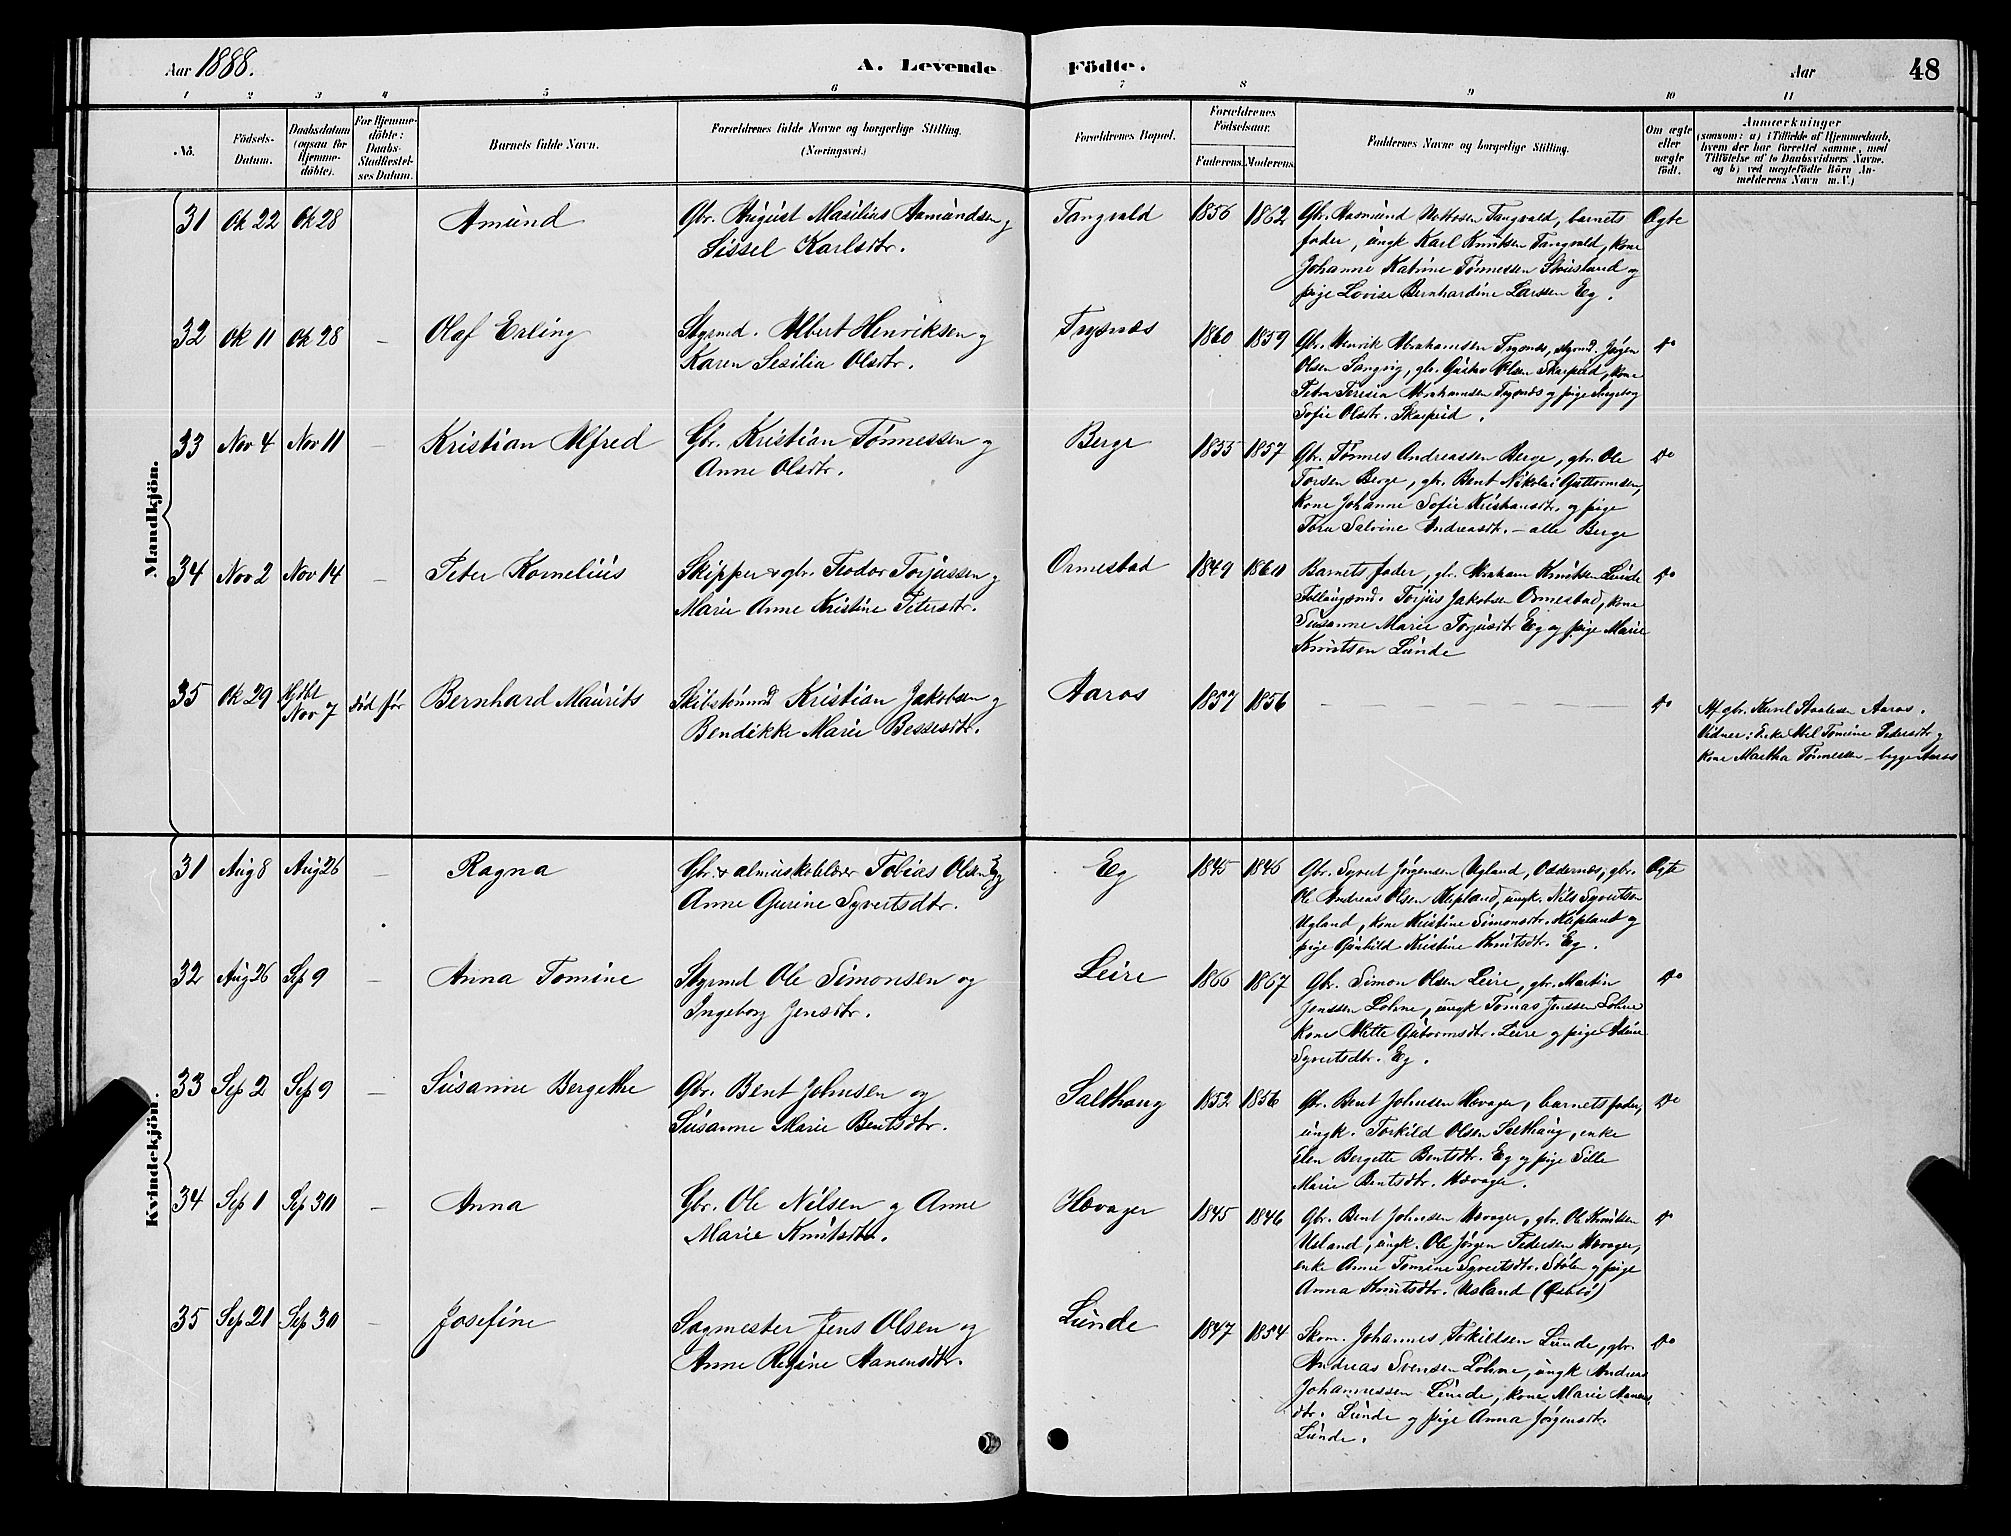 Aar 1888.
A. Levende Födte.
Aar
48
1 2 3 4 5 6 7 8 9 10 11
No.
Födsels-
Datum.
Daabsdatum
(ogsaa for
Hjemme-
döbte).
For Hjemme-
döbte:
Daabs-
Stadfæstel-
ses Datum.
Barnets fulde Navn.
Forældrenes fulde Navne og borgerlige Stilling.
(Næringsvei.)
Forældrenes Bopæl.
Forældrenes
Födselsaar.
Faderens. Moderens.
Faddernes Navne og borgerlige Stilling.
Om ægte
eller
uægte
födt.
Anmærkninger
(saasom: a) i Tilfælde af Hjemmedaab,
hvem der har forrettet samme, med
Tilföielse af to Daabsvidners Navne,
og b) ved uægtefödte Börn An-
melderens Navn m. V.)
Mandkjön.
31 Ok 22 Ok 28 Amund
Gbr. August Masilius Aamundsen og
Sissel Karlsdtr.
Tangvald 1856 1862
Gbr. Aasmund Tangvald, barnets
fader, ungk Karl Knutsen Tangvald, kone
Johanne Katrine Tønnessen Skuesland og
pige Lovise Bernhardine Larssen Eg.
Ægte
32 Ok 11 Ok 28 – Olaf Erling
Styrmd. Albert Henriksen og
Karen Sesilia Olsdtr.
Trysnæs 1860 1859
Gbr. Henrik Abrahamsen Trysnæs, styrmd. Jørgen
Olsen Langvig, gbr. Gustav Olsen Skarperid, kone
Petra Teresia Abrahamsen Trysnæs og pige Ingeborg
Sofie Olsdtr. Skarperid.
do
33 Nov 4 Nov 11 – Kristian Alfred
Gbr. Kristian Tønnessen og
Anne Olsdtr.
Berge 1855 1857
Gbr. Tønnes Andreassen Berge, gbr. Ole
Torsen Berge, gbr. Bent Nikolai Guttormsen,
kone Johanne Sofie Kristiansdtr. og pige
Tora Salvine Andreasdtr. – alle Berge
do
34 Nov 2 Nov 14 – Peter Kornelius
Skipper & gbr. Teodor Torjussen og
Marie Anne Kristine Petersdtr.
Ormestad 1849 1860
Barnets fader, gbr. Abraham Knutsen Lunde
Torjus Jakobsen Ormestad, kone
Susanne Marie Torjusdtr Eg og pige Marie
Knutsen Lunde
do
35 Ok 29 Hjdbt
Nov 7 død før Bernhard Maurits
Skibstømmd Kristian Jakobsen og
Bendikke Marie Bessesdtr.
Aaros 1857 1856 – – – – – – do
Af gbr. Staalesen Aaros.
Vidner: Enke Abel Tomine Pedersdtr og
kone Martha Tønnessen – begge Aaros
Kvindekjön.
31 Aug 8 Aug 26 – Ragna
Gbr. & almueskolelærer Tobias Olsen Eg og
Anne Gurine Syvertsdtr.
Eg 1845 1846
Gbr. Syvert Jørgensen Ugland, Oddernæs, gbr.
Ole Andreas Olsen Repland, ungk. Nils Syvertsen
Ugland, kone Kristine Simonsdtr. Repland og
pige Gunhild Kristine Knutsdtr. Eg.
Ægte
32 Aug 26 Sep 9 – Anna Tomine
Styrmd Ole Simonsen og
Ingeborg Jensdtr.
Leire 1866 1867
Gbr. Simon Olsen Leire, gbr. Martin
Jenssen Lohne, ungk Tomas Jenssen Lohne
kone Mette Guttormsdtr. Leire og pige Adine
Syvertsdtr. Eg.
do
33 Sep 2 Sep 9 – Susanne Bergethe
Gbr. Bent Johnsen og
Susanne Marie Bentsdtr.
Salthaug 1852 1856
Gbr. Bent Johnsen Hævager, barnets fader,
ungk. Torkild Olsen Salthaug, enke
Elen Bergette Bentsdtr. Eg og pige Sille
Marie Bentsdtr. Hævager.
do
34 Sep 1 Sep 30 – Anna
Gbr. Ole Nilsen og Anne
Marie Knutsdtr.
Hævager 1845 1846
Gbr. Bent Johnsen Hævager, gbr. Ole Knutsen
Usland, ungk. Ole Jørgen Pedersen Hævager,
enke Anne Tomine Syvertsdtr. Stølen og pige
Anna Knutsdtr. Usland (Øslebø)
do
35 Sep 21 Sep 30 – Josefine
Sagmester Jens Olsen og
Anne Regine Aanensdtr.
Lunde 1847 1854
Skom. Johannes Torkildsen Lunde, gbr.
Andreas Svensen Lohne, ungk Andreas
Johannessen Lunde, kone Marie Aanens
dtr. Lunde og pige Anna Jørgensdtr.
Lunde.
do